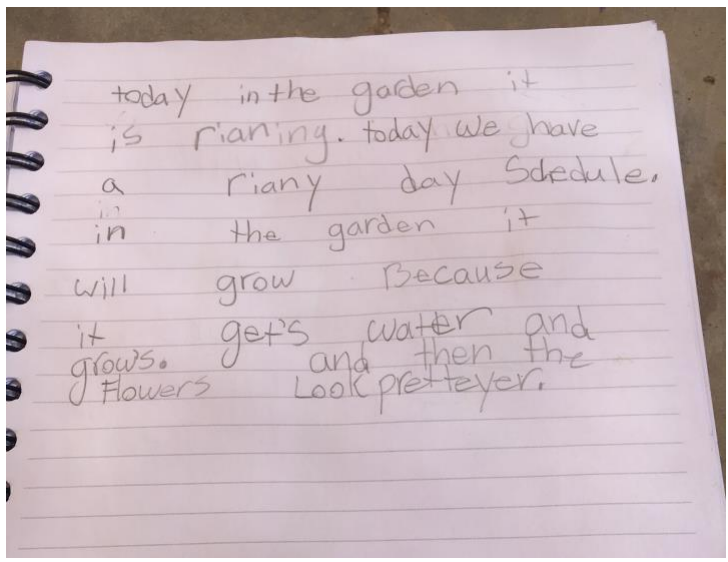 today in the garden it
is rianing. today we have
a riany day Schedule.
in the garden it
will grow Because
it get's water and
grows. and then the
Flowers Look pretteyer.